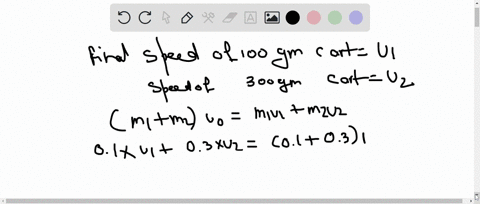 final speed of 100 gm cart = U1
speed of 300 gm cart = U2
(m1+m2) u0 = m1u1 + m2u2
0.1 x u1 + 0.3 x u2 = (0.1 + 0.3) 1